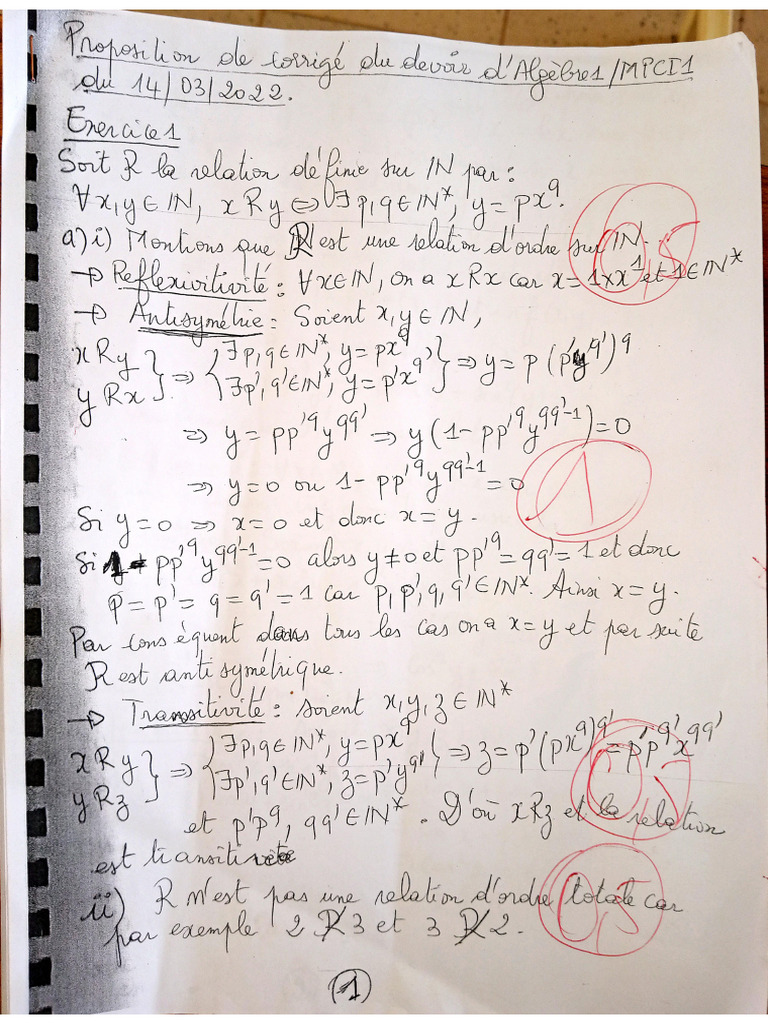 Proposition de corrigé du devoir d'Algèbre1/MPCI1
du 14/03/2022.
Exercice 1
Soit R la relation définie sur IN par :
∀x,y ∈ IN, xRy ⇔ ∃ p,q ∈ IN*, y = px^q.
a) i) Montrons que R est une relation d'ordre sur IN.
0,5
→ Reflexivitivité : ∀x ∈ IN, on a xRx car x = 1×x^1 et 1 ∈ IN*
→ Antisymétrie : Soient x,y ∈ IN,
xRy
yRx } ⇒ { ∃p,q ∈ IN*, y = px^q
∃p',q' ∈ IN*, y = p'x^q' } ⇒ y = p (p'y^q')^q
⇒ y = pp'^q y^qq' ⇒ y(1 - pp'^q y^qq'-1) = 0
⇒ y = 0 ou 1 - pp'^q y^qq'-1 = 0
1
Si y = 0 ⇒ x = 0 et donc x = y.
Si pp'^q y^qq'-1 = 0 alors y ≠ 0 et pp'^q = qq' = 1 et donc
p = p' = q = q' = 1 car p,p',q,q' ∈ IN*. Ainsi x = y.
Par conséquent dans tous les cas on a x = y et par suite
R est antisymétrique.
→ Transitivité : soient x,y,z ∈ IN*
xRy
yRz } ⇒ { ∃p,q ∈ IN*, y = px^q
∃p',q' ∈ IN*, z = p'y^q' } ⇒ z = p'(px^q)^q' = p'p^q' x^qq'
0,5
et p'p^q, qq' ∈ IN*. D'où xRz et la relation
est transitive
ii) R n'est pas une relation d'ordre totale car
0,5
par exemple 2 R̸ 3 et 3 R̸ 2.
1